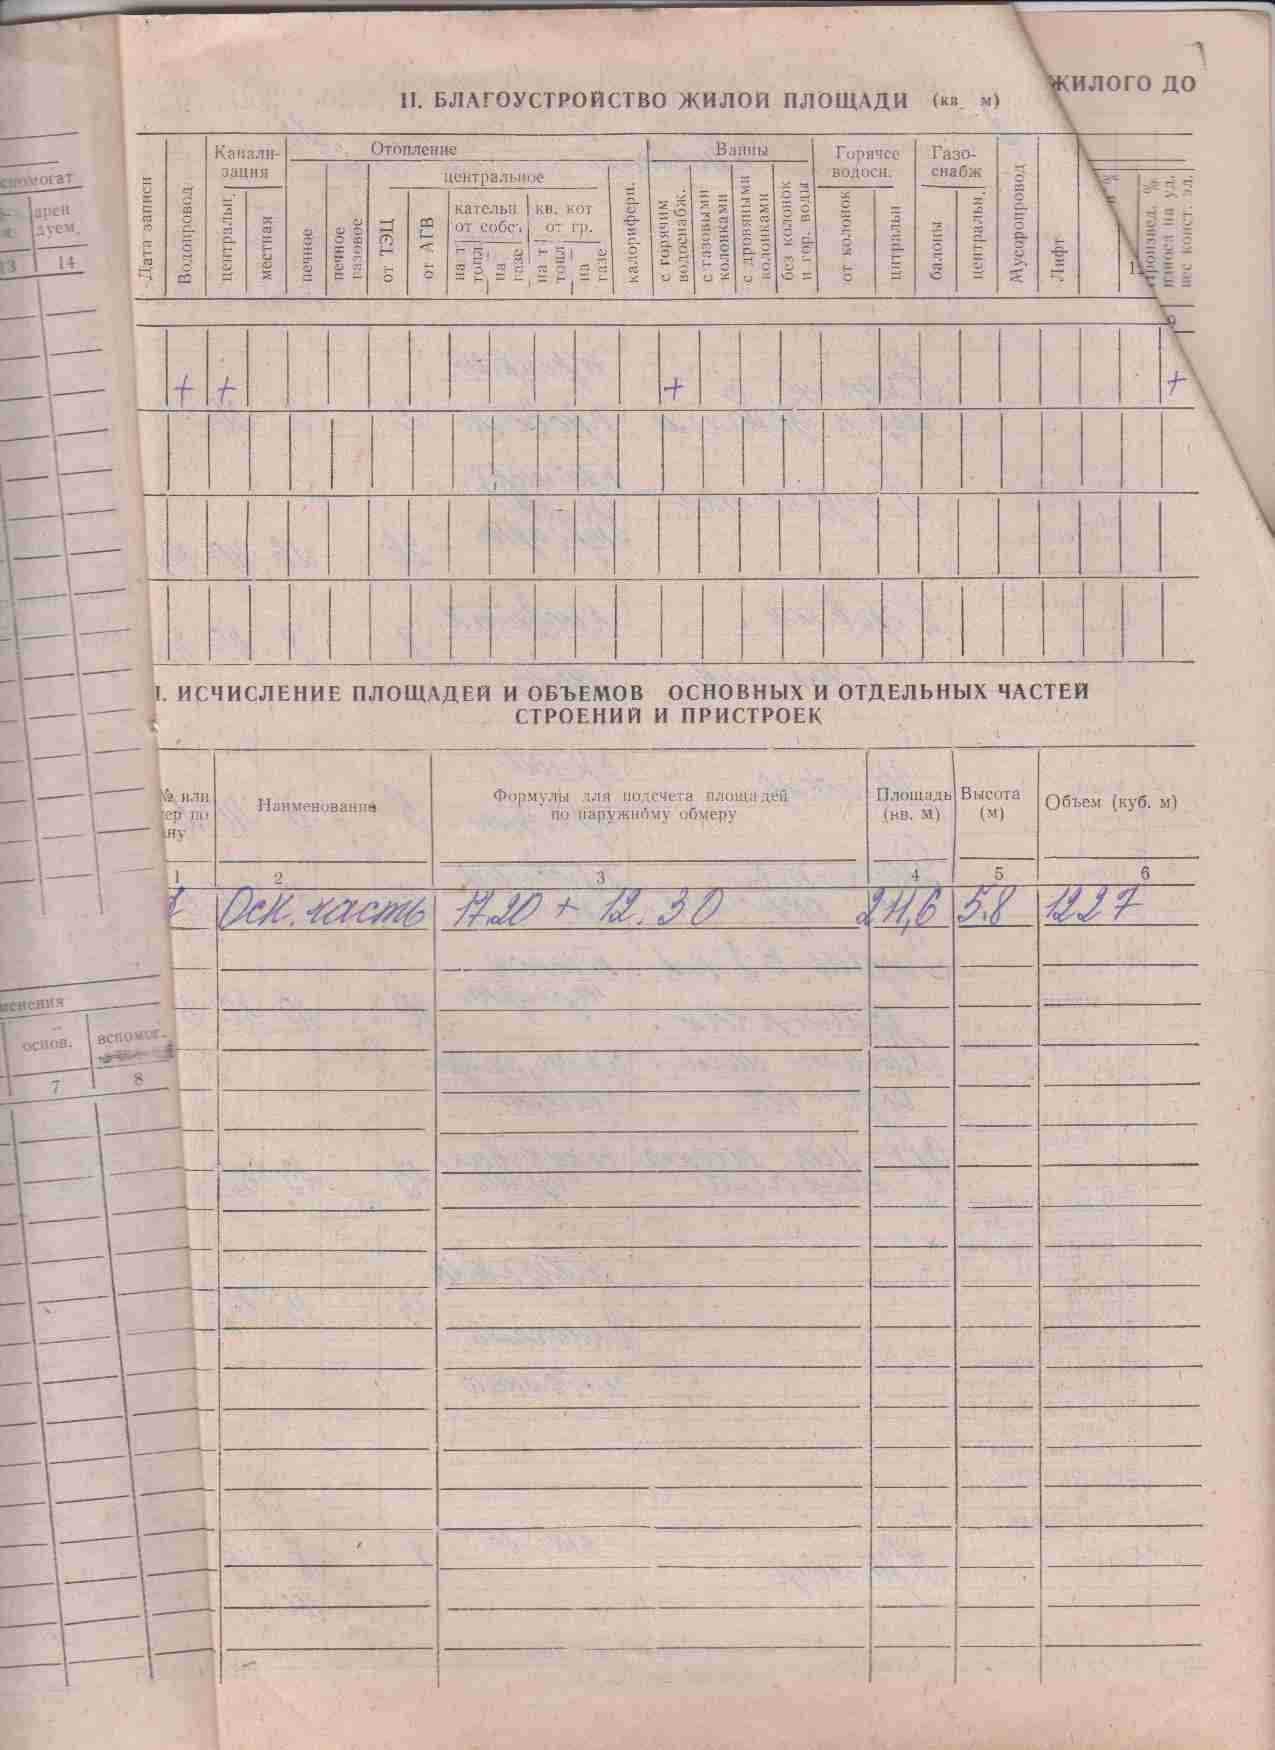 II. БЛАГОУСТРОЙСТВО ЖИЛОЙ ПЛОЩАДИ (кв. м)
ЖИЛОГО ДО
Дата записи
Водопровод
Канали-
зация
централь.
местная
Отопление
печное
печное
газовое
центральное
от ТЭЦ
от АГВ
кательн
от собс.
на т
топл
на
газе
кв. кот
от гр.
на т
топл
на
газе
калорифери.
Ванны
с горячим
водоснабж.
с газовыми
колонками
с дровяными
колонками
без колонок
и гор. воды
Горячее
водосн.
от колонок
цнтральн
Газо-
снабж
балоны
централь.
Мусоропровод
Лифт
произвед. %
износа на уд.
вес конст. эл.
9
+ + + +
I. ИСЧИСЛЕНИЕ ПЛОЩАДЕЙ И ОБЪЕМОВ ОСНОВНЫХ И ОТДЕЛЬНЫХ ЧАСТЕЙ
СТРОЕНИЙ И ПРИСТРОЕК
№ или
ер по
ну
Наименование
Формулы для подсчета площадей
по наружному обмеру
Площадь
(кв. м)
Высота
(м)
Объем (куб. м)
1 2 3 4 5 6
Осн. часть 17.20 + 12.30 211,6 5.8 1227
спомогат
арен
дуем.
13 14
менения
основ.
вспомог.
7 8